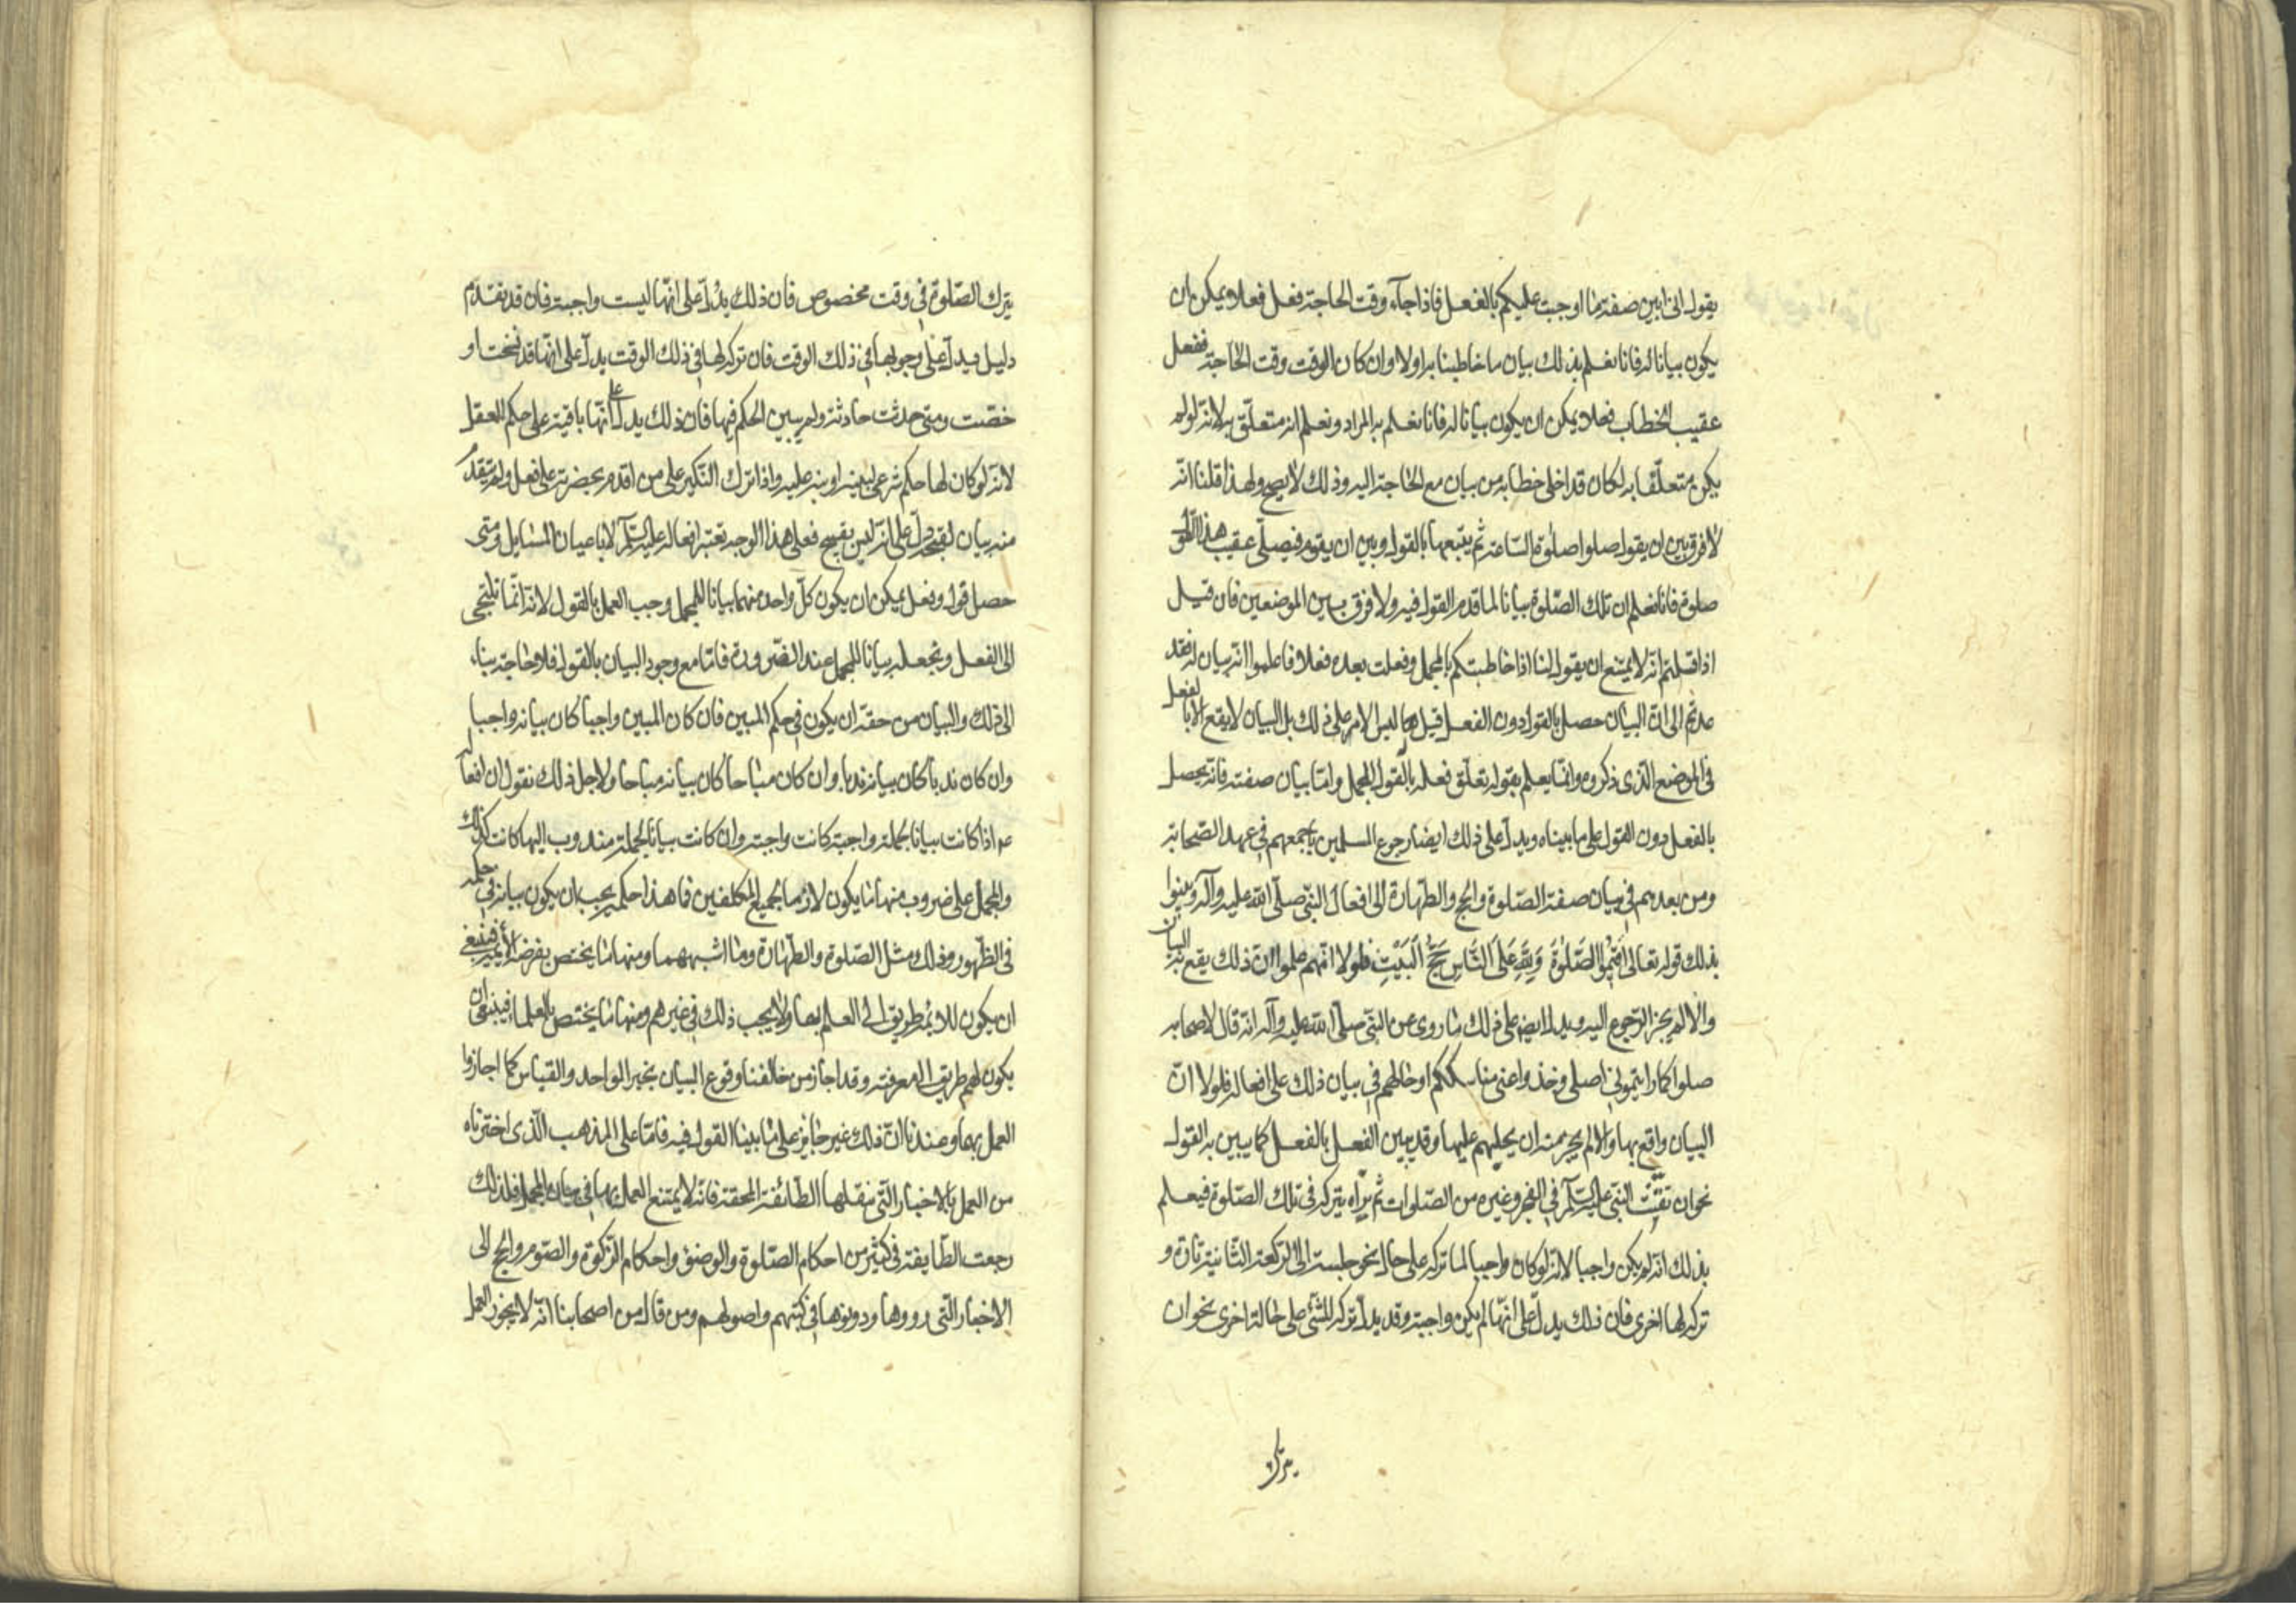 يقول انى ابين صفة ما اوجبت عليكم بالفعل فاذا جآء وقت الحاجة فعل فعلا يمكن ان
يكون بيانا له فانا نعلم بذلك بيان ما خاطبنا به اولا وان كان الوقت وقت الحاجة ففعل
عقيب الخطاب فعلا يمكن ان يكون بيانا له فانا نعلم به المراد ونعلم انه متعلق به لانه لو لم
يكن متعلقا به لكان قد اخلى خطابه من بيان مع الحاجة اليه وذلك لا يصح ولهذا قلنا انه
لا فرق بين ان يقول صلوا صلوة الساعة ثم يتبعها بالقول وبين ان يقوم فيصلى عقيب هذا القول
صلوة فانا نعلم ان تلك الصلوة بيانا لما قدم القول فيه ولا فرق بين الموضعين فان قيل
اذا قلتم انه لا يمتنع ان يقول لنا اذا خاطبتكم بالمجمل وفعلت بعده فعلا فاعلموا انه بيان له فقد
عدتم الى ان البيان حصل بالقول دون الفعل قيل لها ليس الامر على ذلك بل البيان لا يقع الا بالفعل
فى الموضع الذى ذكروه وانما يعلم بقوله تعلق فعله بالقول المجمل واما بيان صفته فانه يحصل
بالفعل دون القول على ما بيناه ويدل على ذلك ايضا رجوع المسلمين باجمعهم فى عهد الصحابة
ومن بعدهم فى بيان صفة الصلوة والحج والطهارة الى افعال النبى صلى الله عليه وآله وبينوا
بذلك قوله تعالى اَقِيمُوا الصَّلوةَ وَلِلّهِ عَلَى النَّاسِ حَجُّ الْبَيْتِ فلولا انهم علموا ان ذلك يقع به البيان
والا لم يجز الرجوع اليه ويدل ايضا على ذلك ما روى عن النبى صلى الله عليه وآله انه قال لاصحابه
صلوا كما رايتمونى اصلى وخذوا عنى مناسككم او حالهم فى بيان ذلك على افعاله فلولا ان
البيان واقع بها والا لم يجز منه ان يحيلهم عليها وقد يبين الفعل بالفعل كما يبين به القول
نحو ان يقنت النبى عليه السلام فى الفجر وغيره من الصلوات ثم يراه يتركه فى تلك الصلوة فيعلم
بذلك انه لم يكن واجبا لانه لو كان واجبا لما تركه على حال نحو جلسته الى الركعة الثانية تارة و
تركه لها اخرى فان ذلك يدل على انها لم يكن واجبة وقد يدل تركه للشئ على حالة اخرى نحو ان
يترك
يترك الصلوة فى وقت مخصوص فان ذلك يدل على انها ليست واجبة فان قد تقدم
دليل يدل على وجوبها فى ذلك الوقت فان تركه لها فى ذلك الوقت يدل على انها قد نسخت او
خصت ومتى حدثت حادثة ولم يبين الحكم فيها فان ذلك يدل على انها باقية على حكم العقل
لانه لو كان لها حكم شرعى لبينه او نبه عليه واذا ترك النكير على من اقدم بحضرته على فعل ولم يتقدم
منه بيان لقبحه دل على انه ليس بقبيح فعلى هذا الوجه تعتبر افعاله عليه السلام لا باعيان المسايل ومتى
حصل قول وفعل يمكن ان يكون كل واحد منهما بيانا للمجمل وجب العمل بالقول لانه انما نلتجى
الى الفعل ونجعله بيانا للمجمل عند الضرورة فاما مع وجود البيان بالقول فلا حاجة بنا
الى ذلك والبيان من حقه ان يكون فى حكم المبين فان كان المبين واجبا كان بيانه واجبا
وان كان ندبا كان بيانه ندبا وان كان مباحا كان بيانه مباحا ولاجل ذلك نقول ان افعاله
عم اذا كانت بيانا لجملة واجبة كانت واجبة وان كانت بيانا لجملة مندوب اليها كانت كذلك
والمجمل على ضروب منها ما يكون لازما لجميع المكلفين فما هذا حكمه يجب ان يكون بيانه فى حكمه
فى الظهور وذلك مثل الصلوة والطهارة وما اشبههما ومنها ما يختص بفرضه الائمة فينبغى
ان يكون للائمة طريق الى العلم بها ولا يجب ذلك فى غيرهم ومنها ما يختص بالعلما فينبغى ان
يكون لهم طريق الى معرفته وقد اجاز من خالفنا وقوع البيان بخبر الواحد والقياس كما اجازوا
العمل بهما وعندنا ان ذلك غير جايز على ما بينا القول فيه فاما على المذهب الذى اخترناه
من العمل بالاخبار التى ينقلها الطائفة المحقة فانه لا يمتنع العمل بها فى بيان المجمل فلذلك
رجعت الطايفة فى كثير من احكام الصلوة والوضوء واحكام الزكوة والصوم والحج الى
الاخبار التى رووها ودونوها فى كتبهم واصولهم ومن قال من اصحابنا انه لا يجوز العمل